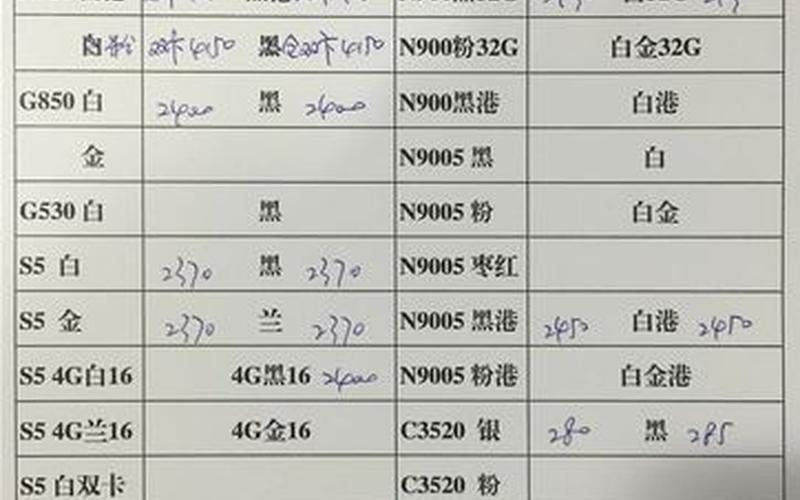 双卡4150 黑 双卡4150 N900粉32G 白金32G
G850 白 2400 黑 2400 N900黑港 白港
金 N9005 黑 白
G530 白 黑 N9005 粉 白金
S5 白 2370 黑 2370 N9005 枣红
S5 金 2370 兰 2370 N9005 黑港 2450 白港 2450
S5 4G白16 4G黑16 2400 N9005 粉港 白金港
S5 4G兰16 4G金16 C3520 银 280 黑 285
S5 白双卡 C3520 粉